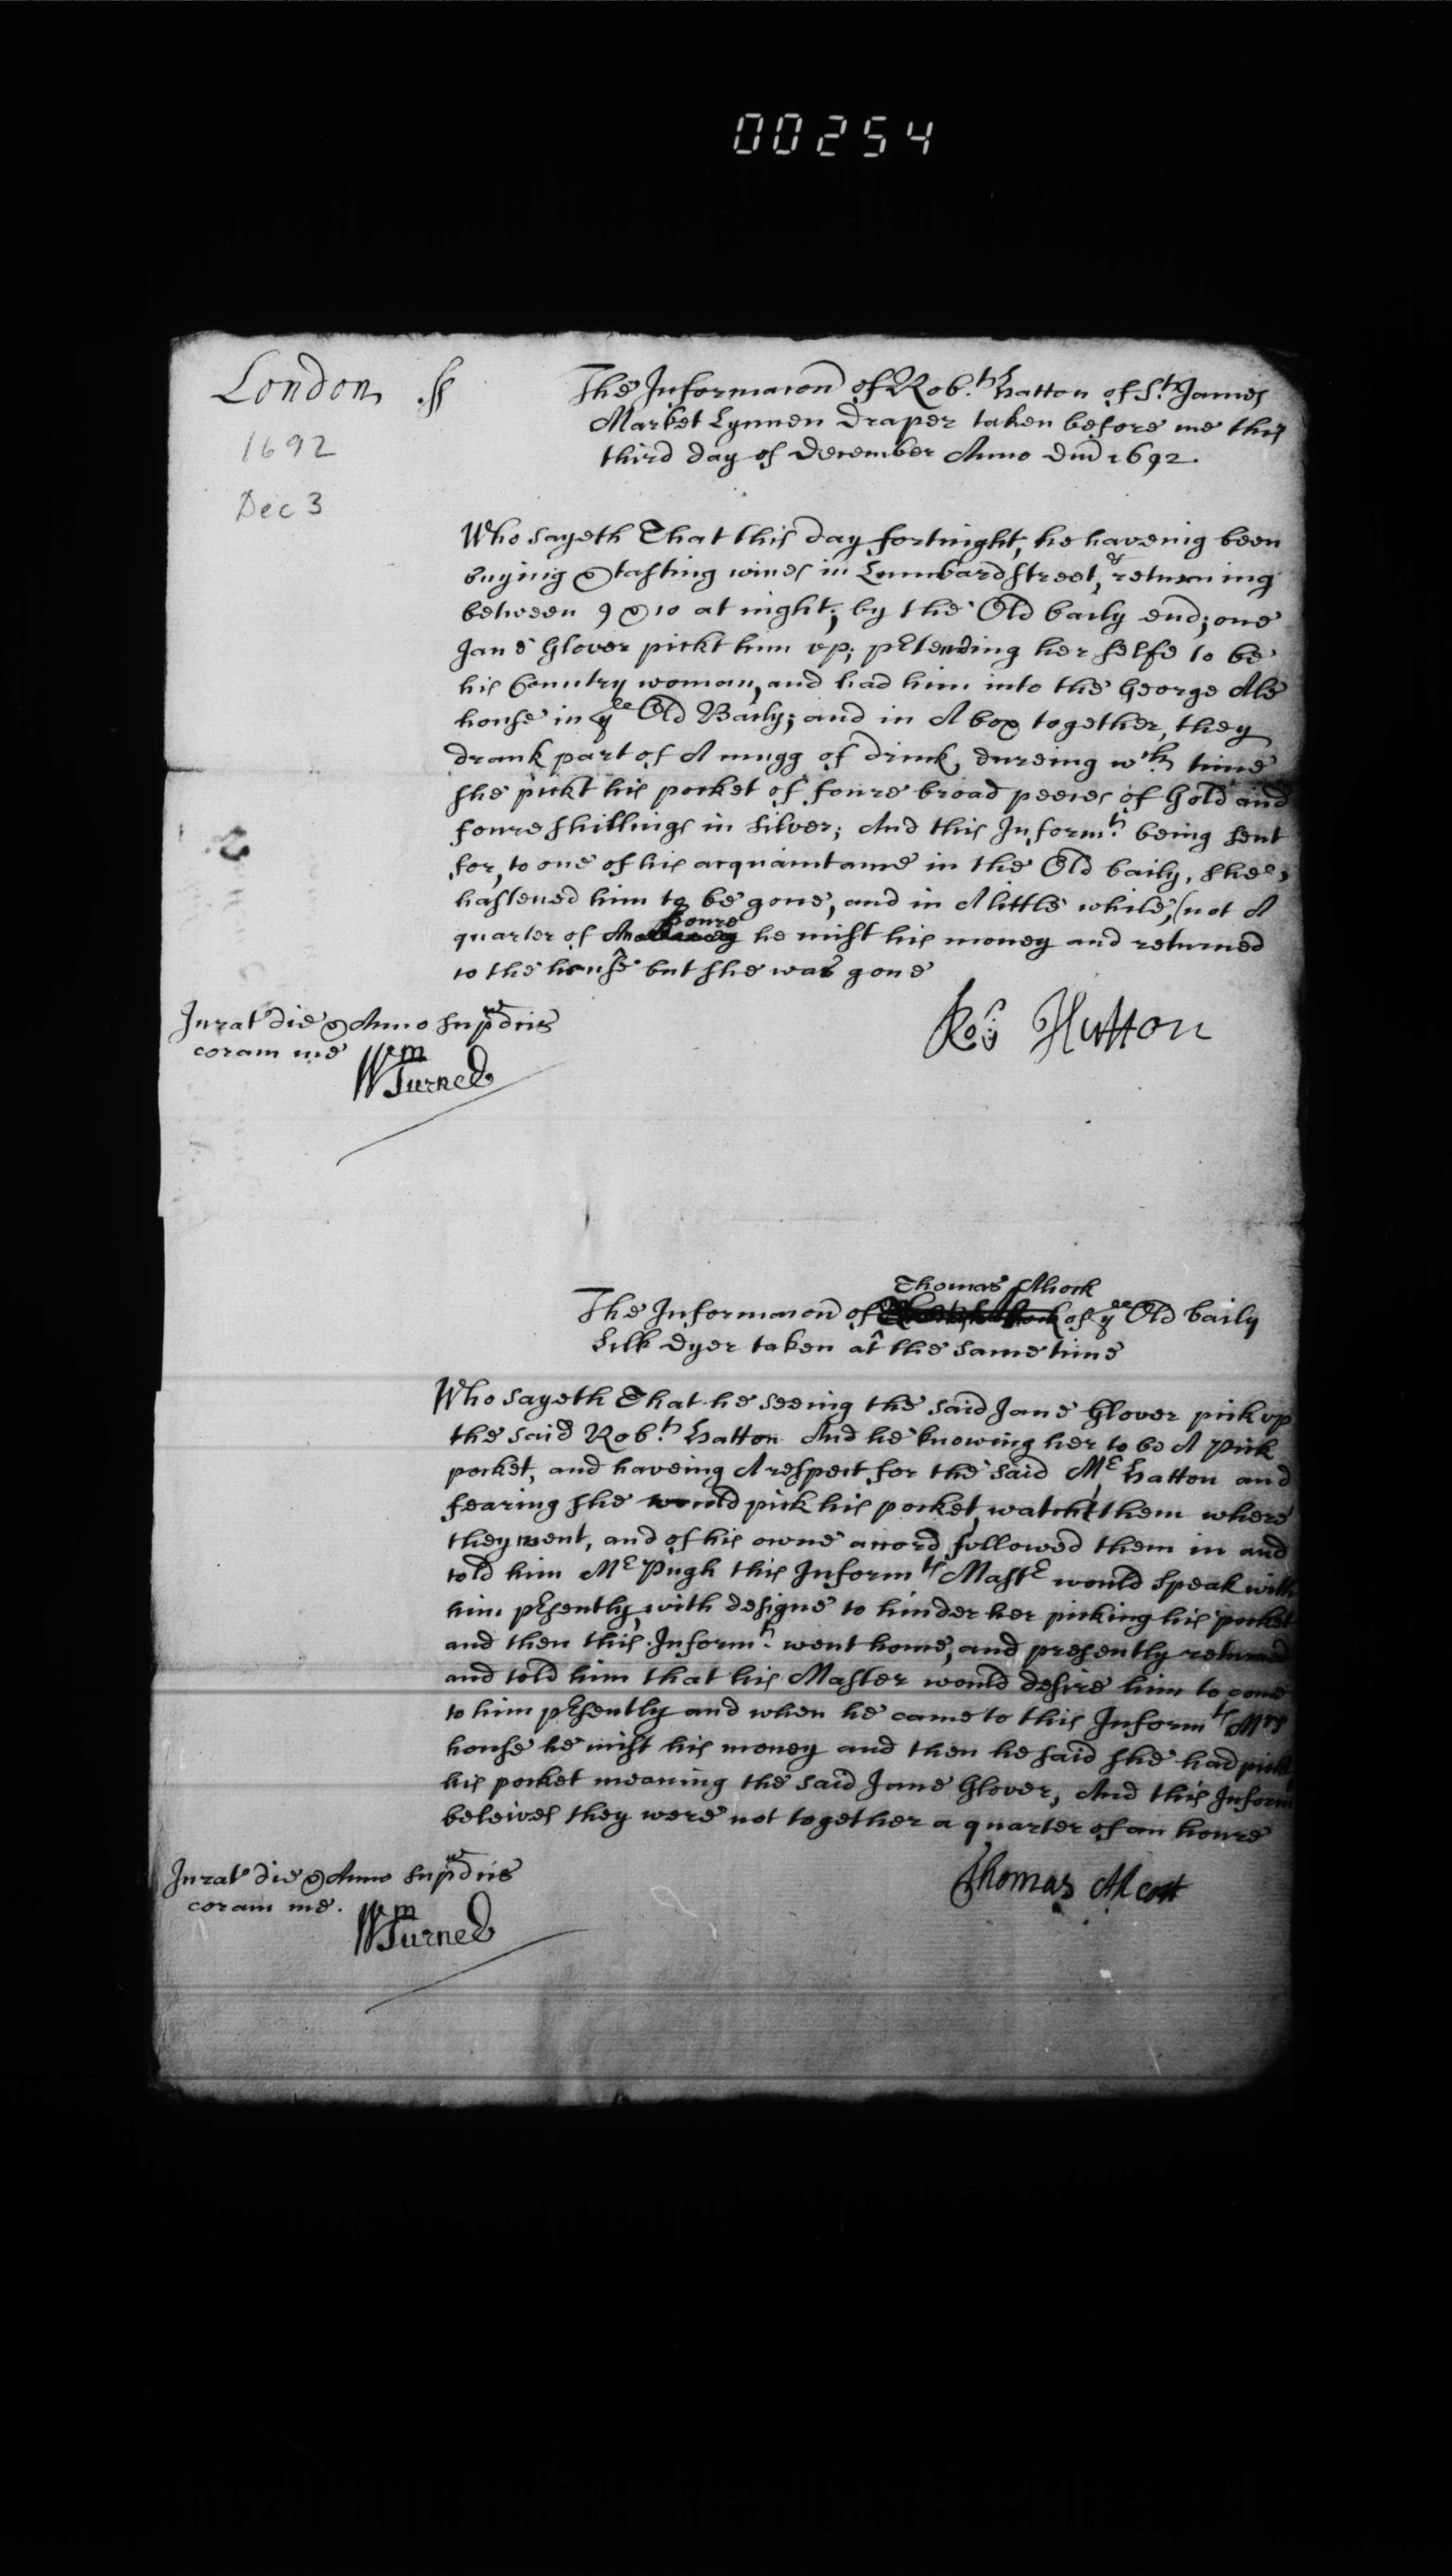 00254
London ss
1692
Dec 3
The Informacon of Robt. Hatton of St. James
Market Lynnen Draper taken before me this
third day of December Anno Dni 1692.
Who sayeth That this day fortnight, he haveing been
buying & tasting wines in Lumbard street, & returning
between 9 & 10 at night, by the Old baily end; one
Jane Glover pickt him vp; pretending her selfe to be
his Country woman, and had him into the George Ale
house in ye Old Baily; and in A box together, they
drank part of A mugg of drink, dureing wch time
she pickt his pocket of foure broad peeces of Gold and
foure shillings in silver; And this Informt. being sent
for, to one of his acquaintance in the Old baily, shee
hastened him to be gone, and in A little while, (not A
quarter of An houre he mist his money and returned
to the house but she was gone
Jurat die & Anno supradcis
coram me
Wm Turner
Ro: Hutton
The Informacon of Thomas Alcock of ye Old baily
Silk Dyer taken at the same time
Who sayeth That he seeing the said Jane Glover pick vp
the said Robt. Hatton And he knowing her to be A Pick
pocket, and haveing A respect for the said Mr. Hatton and
fearing she would pick his pocket, watcht them where
they went, and of his owne accord followed them in and
told him Mr Pugh this Informts Mastr would speak with
him presently, with designe to hinder her picking his pocket
and then this Informt. went home, and presently returned
and told him that his Master would desire him to come
to him presently and when he came to this Informts Mrs
house he mist his money and then he said she had pickt
his pocket meaning the said Jane Glover, And this Inform
beleives they were not together a quarter of an houre
Jurat die & Anno supradcis
coram me.
Wm Turner
Thomas Alcott